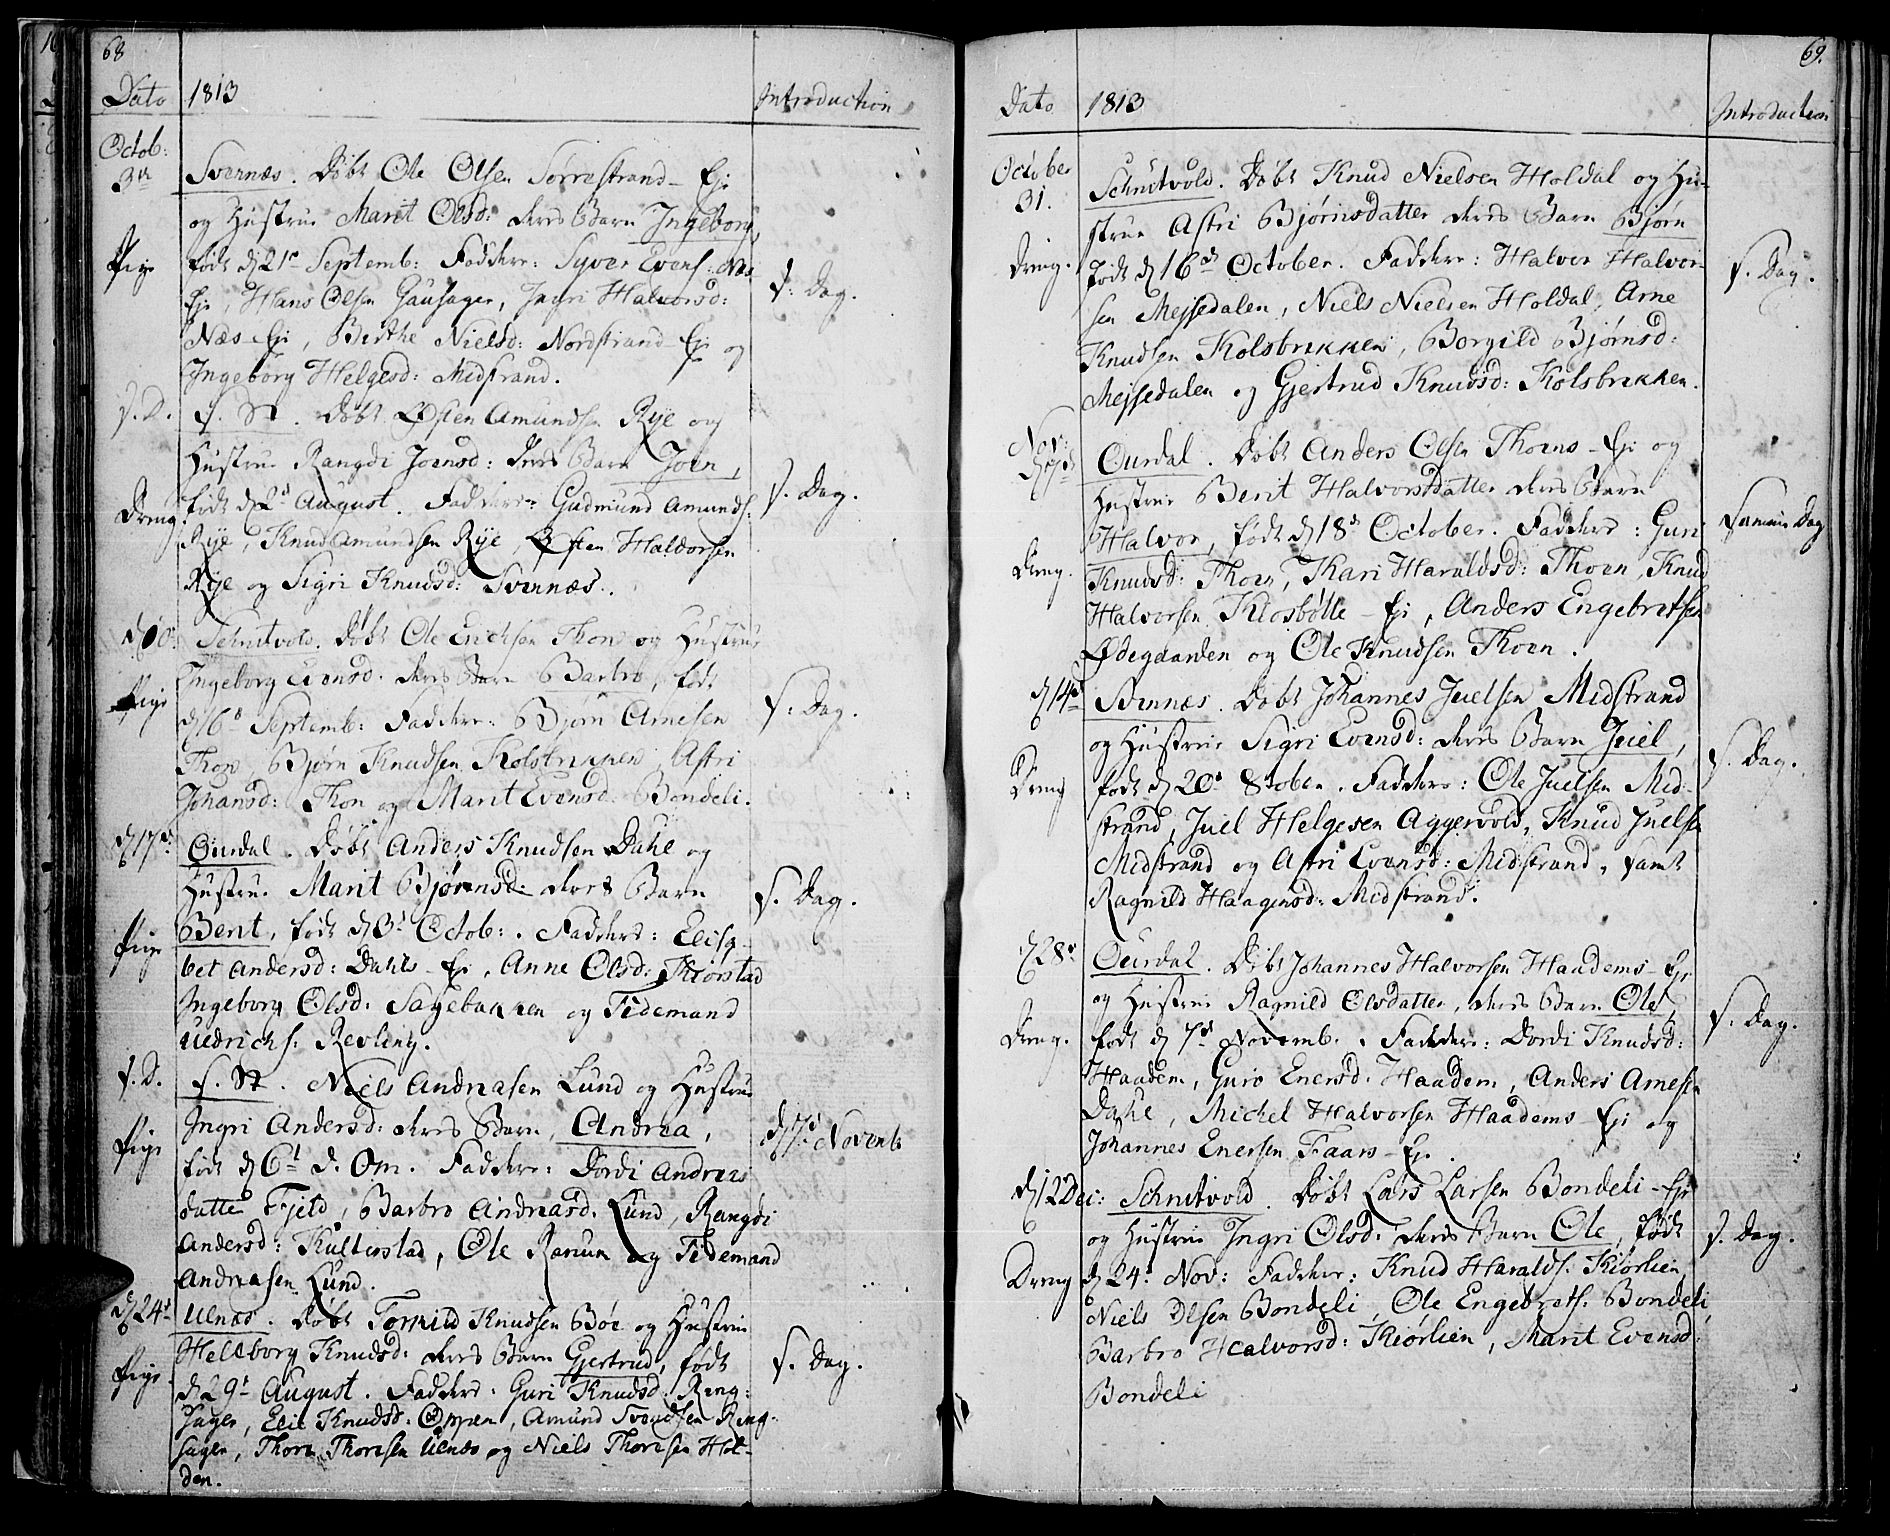 68
Dato 1813 Introduction
Octob:
3de Svennæs. Døbt Ole Olsen Sørrestrand-Eje
og Hustrue Marit Olsd: deres Barn Ingeborg,
Pige født d 21de Septemb: Faddere: Syver Evens: Næs
Eje, Hans Olsen Gausager, Ingri Halvorsd: s. Dag.
Næs-Eje, Birthe Nielsd: Nordstrand-Eje og
Ingeborg Helgesd: Midstrand.
s. D. s. St. Døbt Østen Amundsen Rye og
Hustrue Rangdi Joensd: deres Barn Joen,
Dreng. født d 2d August. Faddere: Gudmund Amunds: s. Dag.
Rye, Knud Amundsen Rye, Østen Haldorsen
Rye og Sigri Knudsd: Svennæs.
d 10de Schutvold. Døbt Ole Erichsen Thon og Hustrue
Ingeborg Evensd: deres Barn Barbro, født
Pige d 6d Septemb: Faddere: Bjørn Arnesen s. Dag.
Thon, Bjørn Knudsen Kolsbrekken, Astri
Johansd: Thon og Marit Evensd: Bondeli.
d 17de Ourdal. Døbt Anders Knudsen Dahl og
Hustrue Marit Bjørnsd: deres Barn s. Dag.
Pige Berit, født d 3d Octob:. Faddere: Elisa-
bet Andersd: Dahls-Eje, Anne Olsd: Kiorstad
Ingeborg Olsd: Sagebakken og Tidemand
Uldrichs. Revling.
s. D. s. St. Niels Andreasen Lund og Hustrue
Ingri Andersd: deres Barn, Andrea, d 7de Novemb
Pige født d 6d d. Om. Faddere: Dordi Andreas
datter Fjeld, Barbro Andreasd. Lund, Rangdi
Andersd: Kulterstad, Ole Ranum og Tidemand
Andreasen Lund.
d 24d Ulnæs. Døbt Tormild Knudsen Böe og Hustrue
Helleborg Knudsd: deres Barn Gjertrud, født s. Dag.
Pige d 29d August. Faddere: Guri Knudsd: Ring-
sager, Elie Knudsd: Oppen, Amund Svendsen Ring-
sager, Thore Thoresen Ulnæs og Niels Thoresen Hol-
den.
69.
Dato 1813 Introduction
October
31. Schutvold. Døbt Knud Nielsen Holdal og Hu-
strue Astri Bjørnsdatter deres Barn Bjørn
Dreng. født d 16de October. Faddere: Halvor Halvor- s. Dag.
sen Mejsedalen, Niels Nielsen Holdal, Arne
Knudsen Kolsbrekken, Borgild Bjørnsd:
Mejsedalen og Gjertrud Knudsd: Kolsbrekken.
Nov:
d 7de Ourdal. Døbt Anders Olsen Thoens-Eje og
Hustrue Berit Halvorsdatter deres Barn
Halvor, født d 18d October. Faddere: Guri Samme Dag
Dreng. Knudsd: Thoen, Kari Haraldsd: Thoen, Knud
Halvorsen Klosbølle-Eje, Anders Engebretsen
Ødegaarden og Ole Knudsen Thoen.
d 14d Svennæs. Døbt Johannes Juelsen Midstrand
og Hustrue Sigri Evensd: deres Barn Juel,
Dreng født d 20d 8tober. Faddere: Ole Juelsen Mid- s. Dag.
strand, Juel Helgesen Aggervold, Knud Juelsen
Midstrand og Astri Evensd: Midstrand, samt
Ragnild Haagensd: Midstrand.
d 28d Ourdal. Døbt Johannes Halvorsen Haadems-Eje
og Hustrue Ragnild Olsdatter, deres Barn Ole,
Dreng. født d 7d Novemb. Faddere: Dordi Knudsd: s. Dag.
Haadem, Guro Enersd: Haadem, Anders Arnesen
Dahl, Michel Halvorsen Haadems-Eje og
Johannes Enersen Faars-Eje.
d 12 Dec: Schutvold. Døbt Lars Larsen Bondeli-Eje
og Hustrue Ingri Olsd: deres Barn Ole, født s. Dag.
Dreng d 24d Nov: Faddere: Knud Haralds. Kiörlien,
Niels Olsen Bondeli, Ole Engebrets. Bondeli,
Barbro Halvorsd: Kiörlien, Marit Evensd:
Bondeli